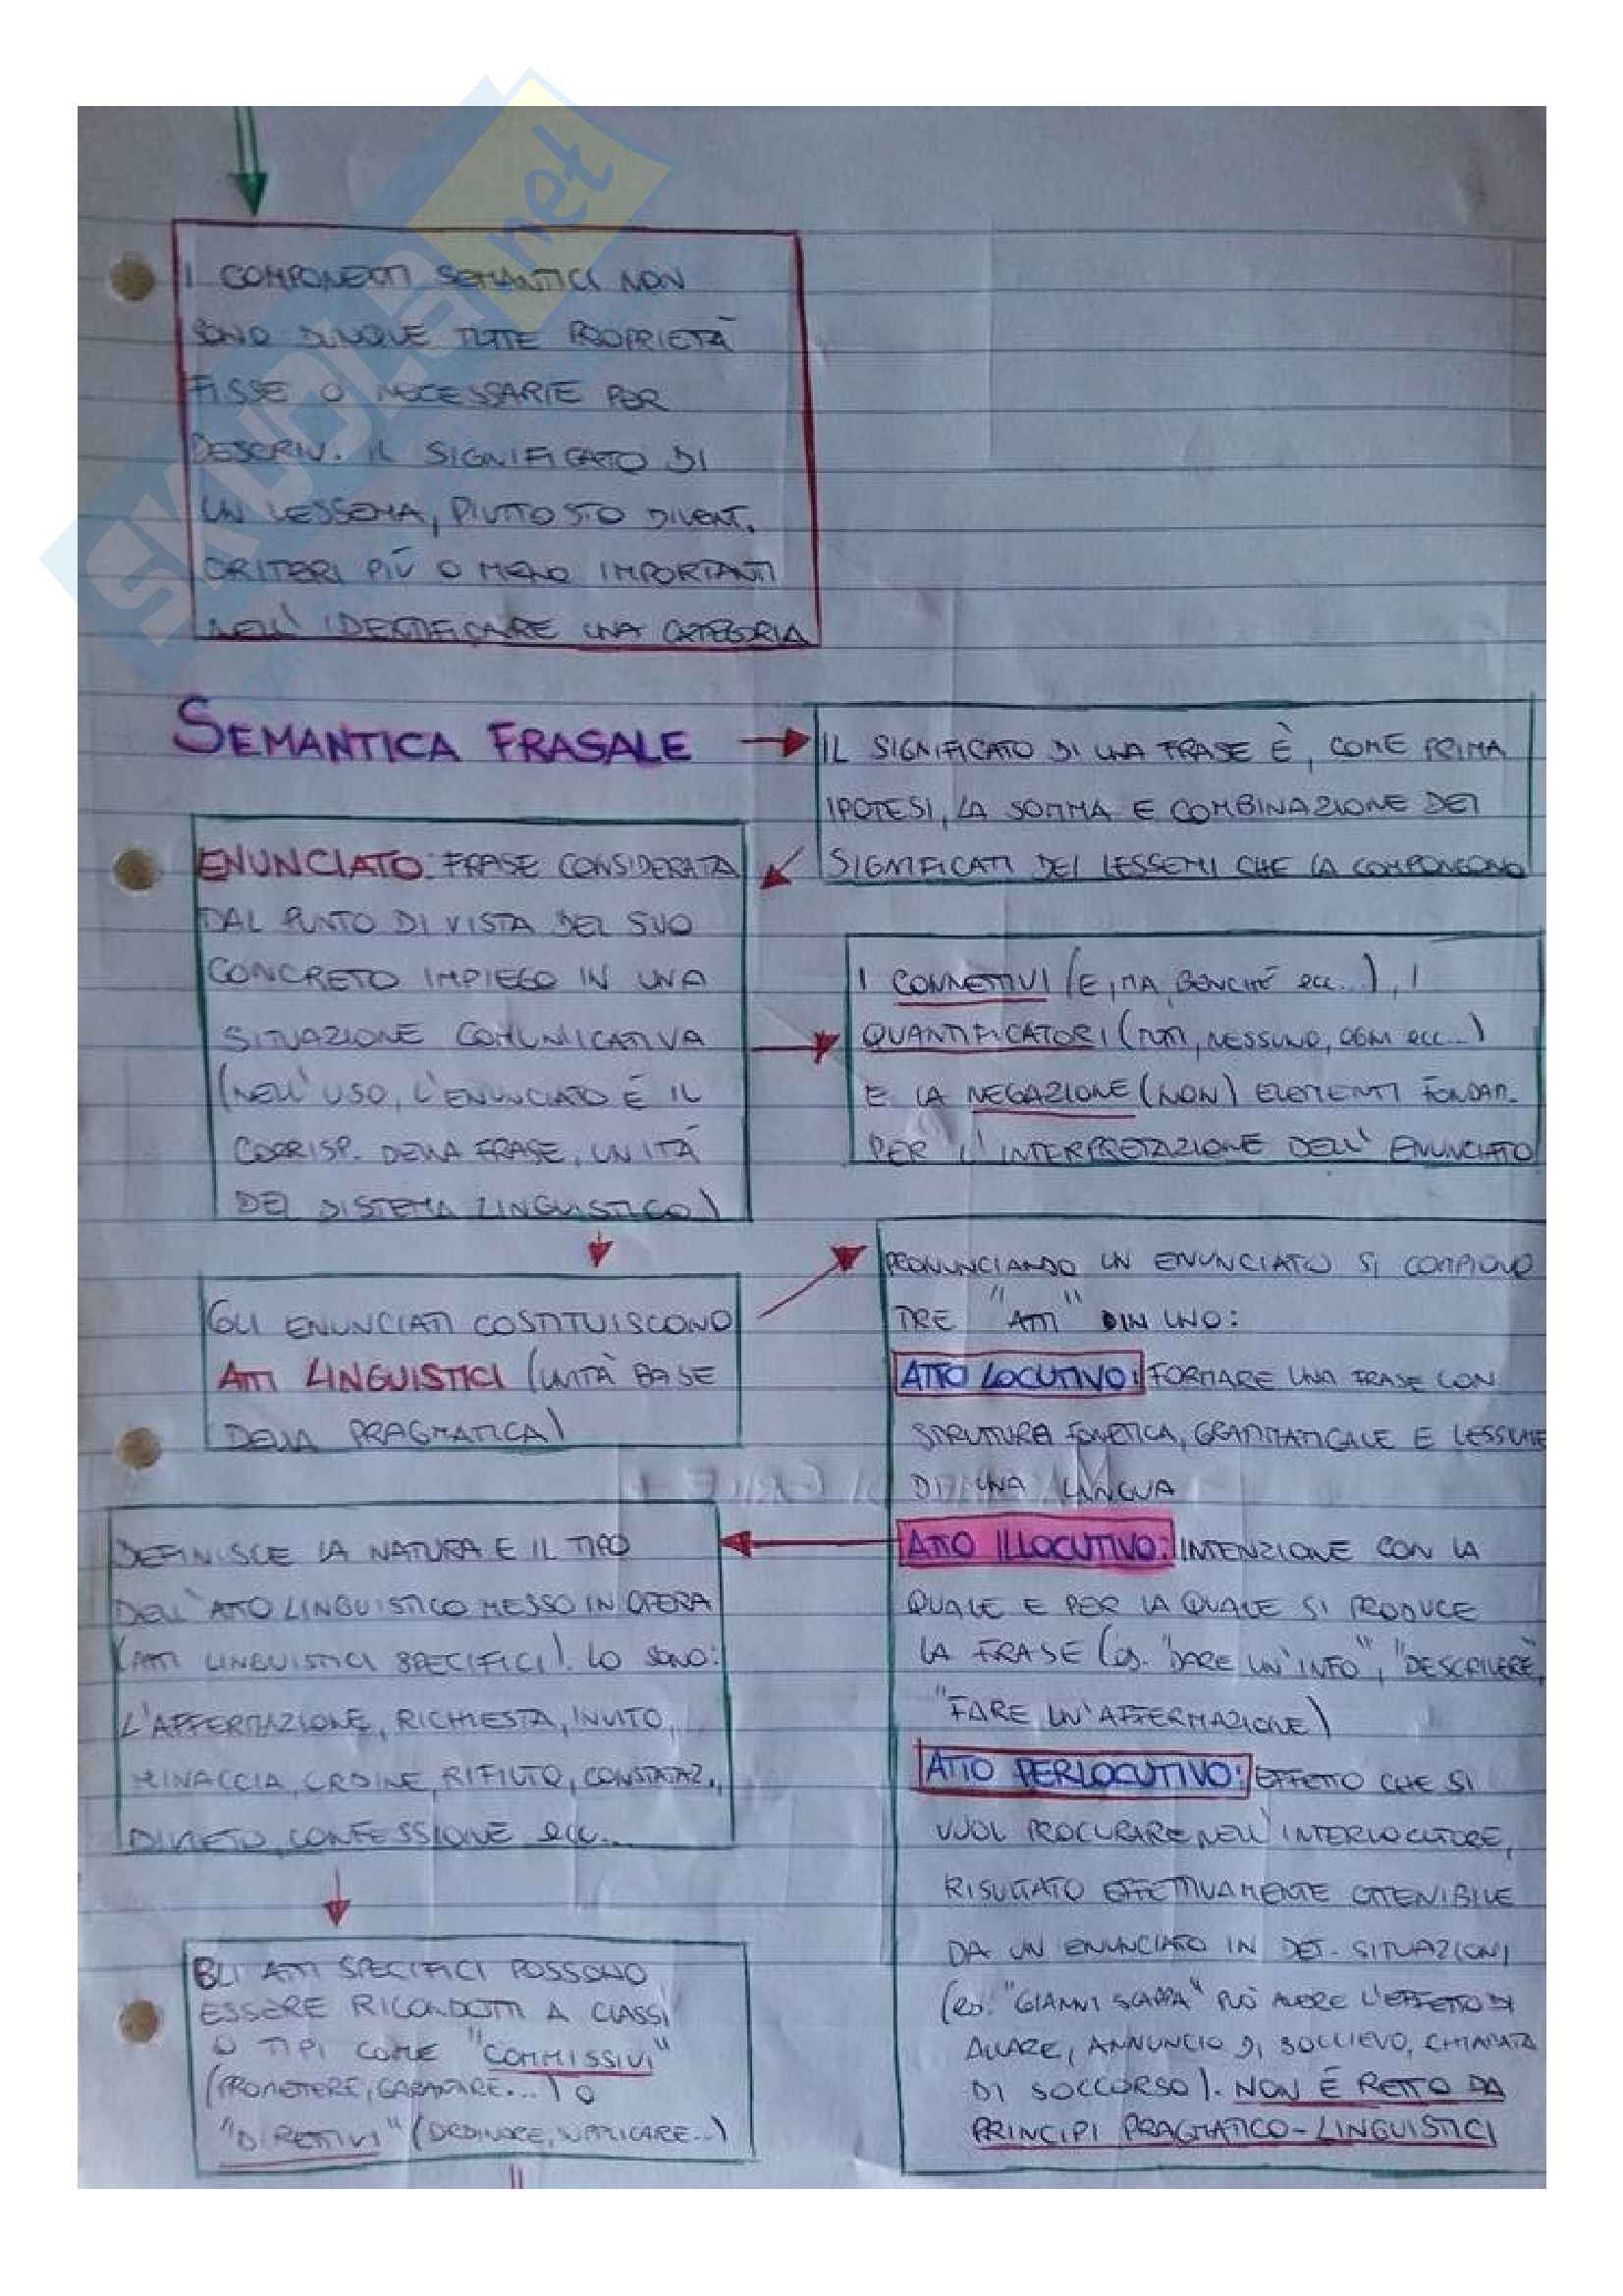 I COMPONENTI SEMANTICI NON
SONO DUNQUE TUTTE PROPRIETÀ
FISSE O NECESSARIE PER
DESCRIV. IL SIGNIFICATO DI
UN LESSEMA, PIUTTOSTO DIVENT.
CRITERI PIÙ O MENO IMPORTANTI
NELL'IDENTIFICARE UNA CATEGORIA
SEMANTICA FRASALE
IL SIGNIFICATO DI UNA FRASE È, COME PRIMA
IPOTESI, LA SOMMA E COMBINAZIONE DEI
SIGNIFICATI DEI LESSEMI CHE LA COMPONGONO
ENUNCIATO: FRASE CONSIDERATA
DAL PUNTO DI VISTA DEL SUO
CONCRETO IMPIEGO IN UNA
SITUAZIONE COMUNICATIVA
(NELL'USO, L'ENUNCIATO È IL
CORRISP. DELLA FRASE, UNITÀ
DEL SISTEMA LINGUISTICO)
I CONNETTIVI (E, MA, BENCHÉ ecc...), I
QUANTIFICATORI (TUTTI, NESSUNO, OGNI ecc...)
E LA NEGAZIONE (NON) ELEMENTI FONDAM.
PER L'INTERPRETAZIONE DELL'ENUNCIATO
GLI ENUNCIATI COSTITUISCONO
ATTI LINGUISTICI (UNITÀ BASE
DELLA PRAGMATICA)
PRONUNCIANDO UN ENUNCIATO SI COMPIONO
TRE "ATTI" IN UNO:
ATTO LOCUTIVO: FORMARE UNA FRASE CON
STRUTTURA FONETICA, GRAMMATICALE E LESSICALE
DI UNA LINGUA
ATTO ILLOCUTIVO: INTENZIONE CON LA
QUALE E PER LA QUALE SI PRODUCE
LA FRASE (es. "DARE UN'INFO", "DESCRIVERE",
"FARE UN'AFFERMAZIONE)
ATTO PERLOCUTIVO: EFFETTO CHE SI
VUOL PROCURARE NELL'INTERLOCUTORE,
RISULTATO EFFETTIVAMENTE OTTENIBILE
DA UN ENUNCIATO IN DET. SITUAZIONI
(es. "GIANNI SCAPPA" PUÒ AVERE L'EFFETTO DI
ALLARME, ANNUNCIO DI SOLLIEVO, CHIAMATA
DI SOCCORSO). NON È RETTO DA
PRINCIPI PRAGMATICO-LINGUISTICI
DEFINISCE LA NATURA E IL TIPO
DELL'ATTO LINGUISTICO MESSO IN OPERA
(ATTI LINGUISTICI SPECIFICI). LO SONO:
L'AFFERMAZIONE, RICHIESTA, INVITO,
MINACCIA, ORDINE, RIFIUTO, CONSTATAZ.,
DIVIETO, CONFESSIONE ecc...
GLI ATTI SPECIFICI POSSONO
ESSERE RICONDOTTI A CLASSI
O TIPI COME "COMMISSIVI"
(PROMETTERE, GARANTIRE...) O
"DIRETTIVI" (ORDINARE, SUPPLICARE...)
SKUOLA.net